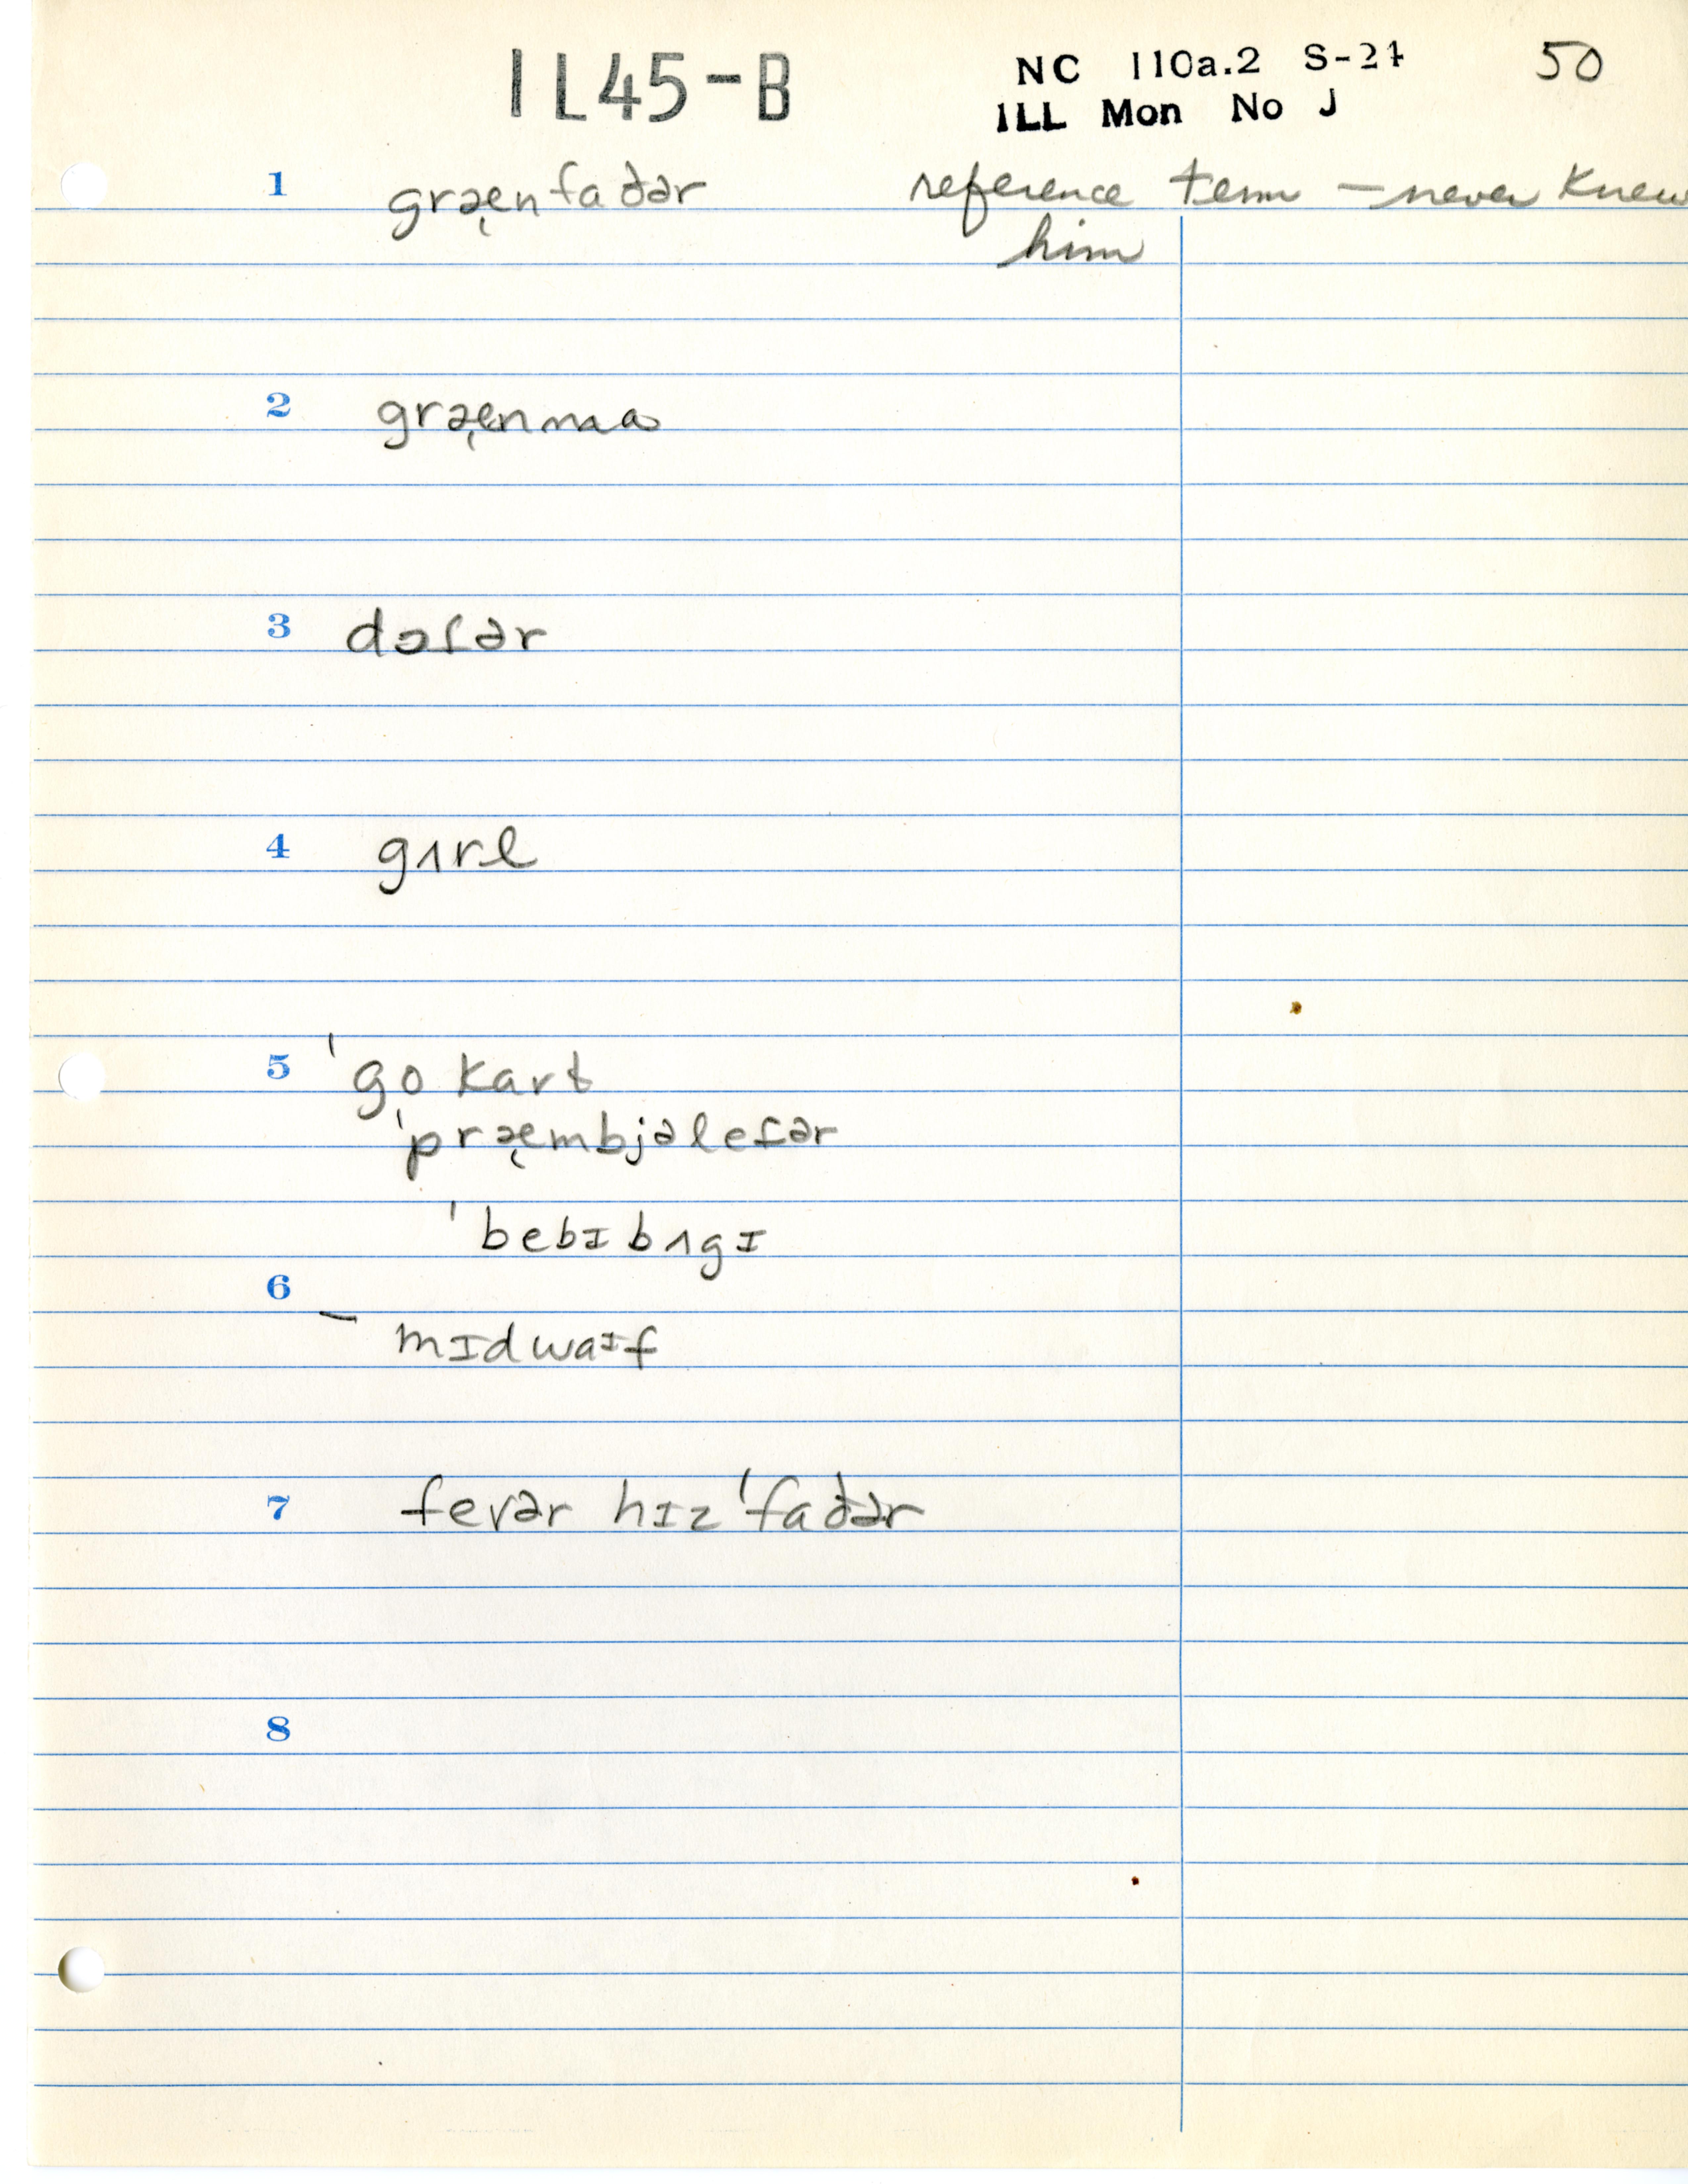 IL45-B
NC 110a.2 S-21
ILL Mon No J
50
1 græ̜nfaðər reference term – never knew
him
2 græ̜nmɑ
3 dɔɾər
4 gʌrl
5 ˈgo kart
ˈpræ̜mbjəleɾər
ˈbebɪbʌgɪ
6
– mɪdwaɪf
7 fevər hɪz ˈfaðər
8